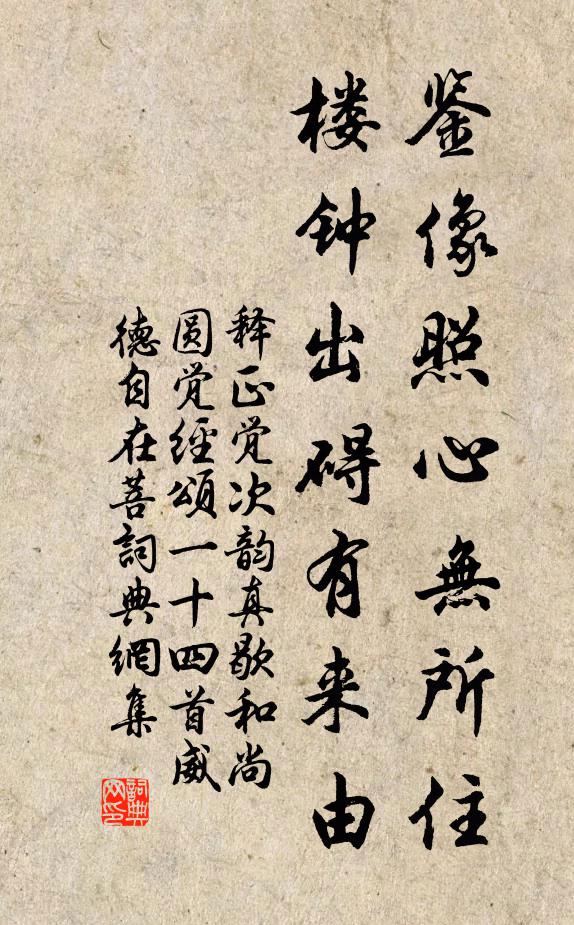 鉴像照心無所住
楼钟出碍有来由
释正觉次韵真歇和尚
圆觉經頌一十四首威
德自在菩詞典網集
詞典
网印